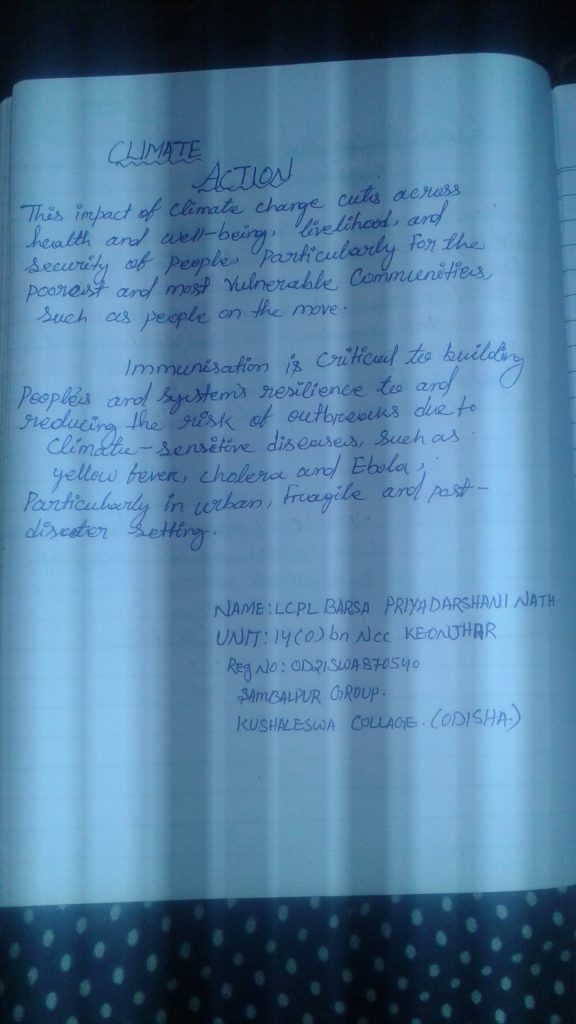 CLIMATE
ACTION
This impact of climate change cuts across
health and well-being, livelihood, and
security of people, Particularly For the
poorest and most Vulnerable Communities,
Such as people on the move.
Immunisation is critical to building
People's and System's resilience to and
reducing the risk of outbreaks due to
Climate-sensitive diseases, such as
yellow fever, cholera and Ebola,
Particularly in urban, Fragile and post-
disaster setting.
NAME: LCPL BARSA PRIYADARSHANI NATH
UNIT: 14(O) bn Ncc KEONJHAR
Reg No: OD21SWA870540
SAMBALPUR GROUP.
KUSHALESWA COLLAGE. (ODISHA.)